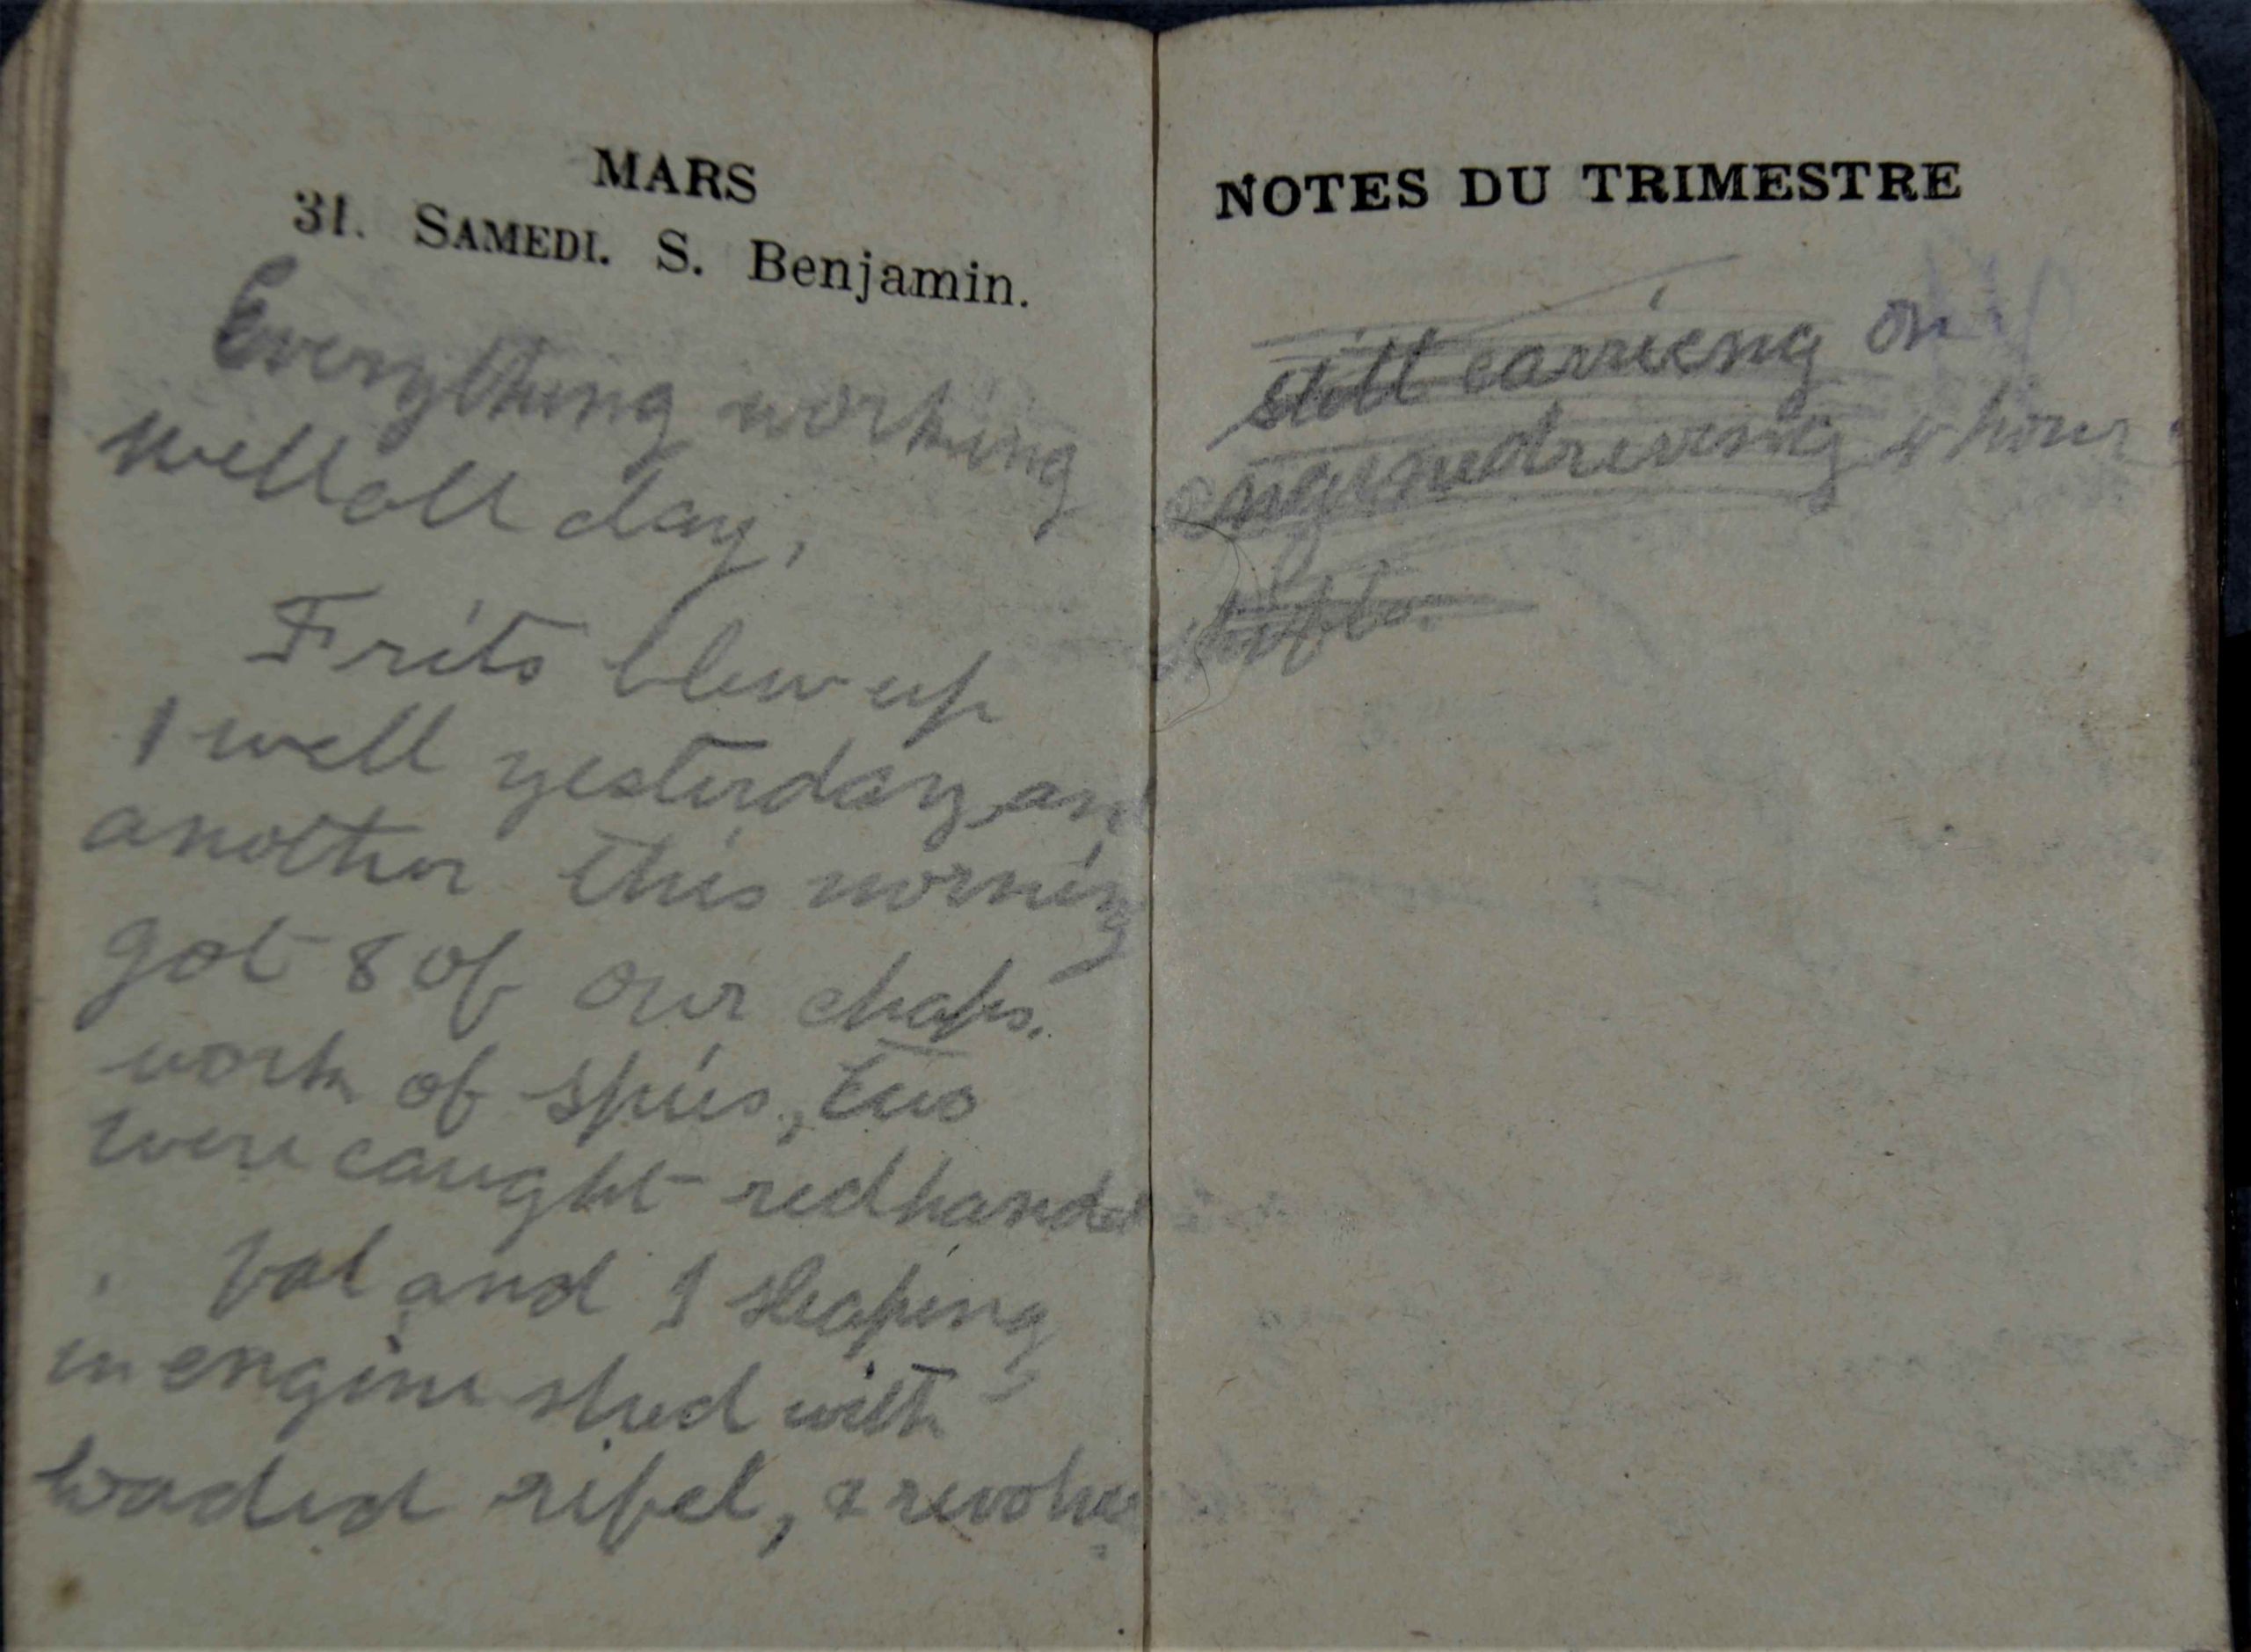 MARS
31. SAMEDI. S. Benjamin.
Everything working
well all day,
Frits blew up
1 well yesterday and
another this morning
got 8 of our chaps.
work of spies, two
were caught redhanded
Val and I sleaping
in engine shed with
loaded rifel, & revolver
NOTES DU TRIMESTRE
still carrieng on
enginedriveing 4 hour
shifts.